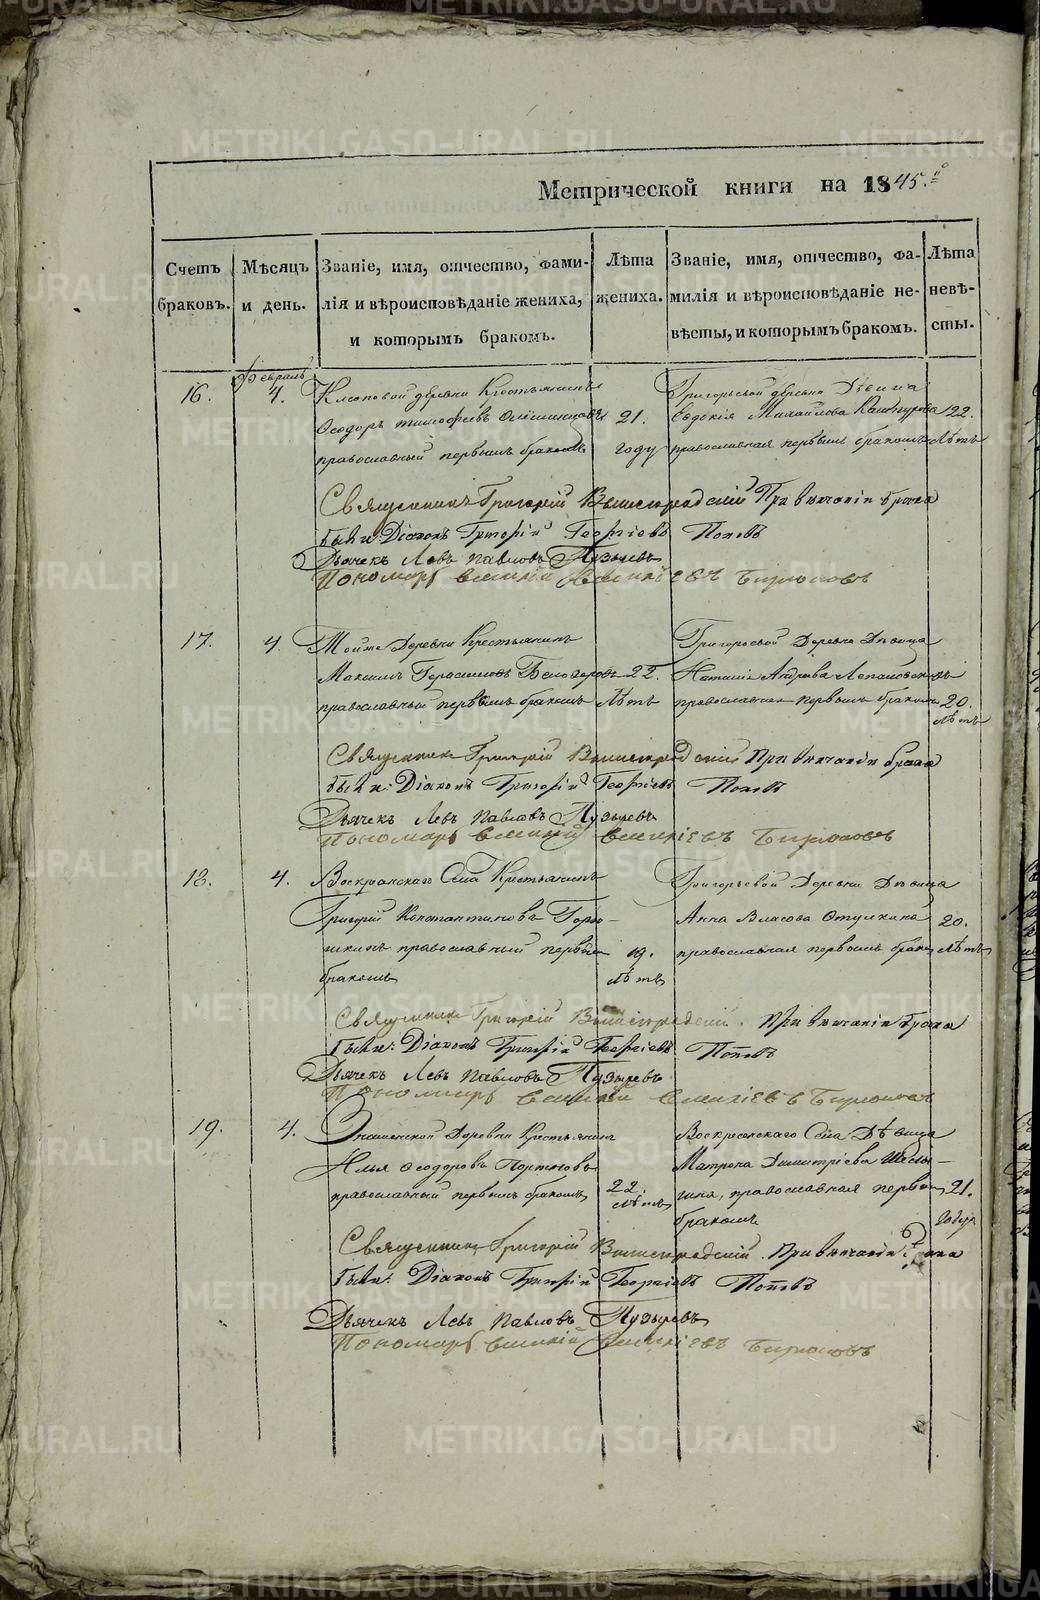 Метрической книги на 1845.й
Счетъ браковъ.
Мѣсяцъ и день.
Званіе, имя, отчество, фами-
лія и вѣроисповѣданіе жениха,
и которымъ бракомъ.
Лѣта
жениха.
Званіе, имя, отчество, фа-
милія и вѣроисповѣданіе не-
вѣсты, и которымъ бракомъ.
Лѣта
невѣ-
сты.
Февраль
16. 4. деревни Крестьянинъ
Ѳеодоръ Тимофеевъ 21.
православный первымъ бракомъ году
Григорьевой деревни Дѣвица
Евдокія Михайлова 22.
православная первымъ бракомъ лѣтъ
Священникъ Григорій Вышегородскій При вѣнчаніи брака
были: Діаконъ Григорій Георгіевъ Поповъ
Дьячекъ Левъ Павловъ Пузыревъ
Пономарь
17. 4. Тойже Деревни Крестьянинъ
Максимъ Герасимовъ Белозеровъ 22.
православный первымъ бракомъ лѣтъ
Григорьевой Деревни Дѣвица
Андреева
православная первымъ бракомъ 20.
лѣтъ
Священникъ Григорій Вышегородскій При вѣнчаніи брака
были: Діаконъ Григорій Георгіевъ Поповъ
Дьячекъ Левъ Павловъ Пузыревъ
Пономарь
18. 4. Воскресенскаго Села Крестьянинъ
Григорій Константиновъ Горо-
шкинъ православный первымъ 19.
бракомъ лѣтъ
Григорьевой Деревни Дѣвица
Анна Власова 20.
православная первымъ бракомъ лѣтъ
Священникъ Григорій Вышегородскій. При вѣнчаніи брака
были: Діаконъ Григорій Георгіевъ Поповъ
Дьячекъ Левъ Павловъ Пузыревъ
Пономарь
19. 4. Знаменской Деревни Крестьянинъ
Илья Ѳеодоровъ Портновъ
православный первымъ бракомъ 22.
лѣтъ
Воскресенскаго Села Дѣвица
Матрона Димитріева
православная первымъ 21.
бракомъ году
Священникъ Григорій Вышегородскій. При вѣнчаніи брака
были: Діаконъ Григорій Георгіевъ Поповъ
Дьячекъ Левъ Павловъ Пузыревъ
Пономарь
METRIKI.GASO-URAL.RU